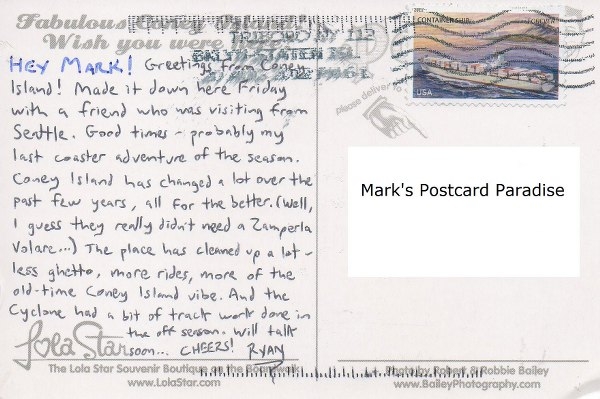 Fabulous Coney Island
Wish you were here
TRIBORO NY 112
HEY MARK! Greetings from Coney
Island! Made it down here Friday
with a friend who was visiting from
Seattle. Good times - probably my
last coaster adventure of the season.
Coney Island has changed a lot over the
past few years, all for the better. (Well,
I guess they really didn't need a Zamperla
Volare...) The place has cleaned up a lot -
less ghetto, more rides, more of the
old-time Coney Island vibe. And the
Cyclone had a bit of track work done in
the off season. Will talk
soon... CHEERS! RYAN
Lola Star
The Lola Star Souvenir Boutique on the Boardwalk
www.LolaStar.com
CONTAINER SHIP
FOREVER
USA
Please deliver to:
Mark's Postcard Paradise
Photo by Robert & Robbie Bailey
www.BaileyPhotography.com